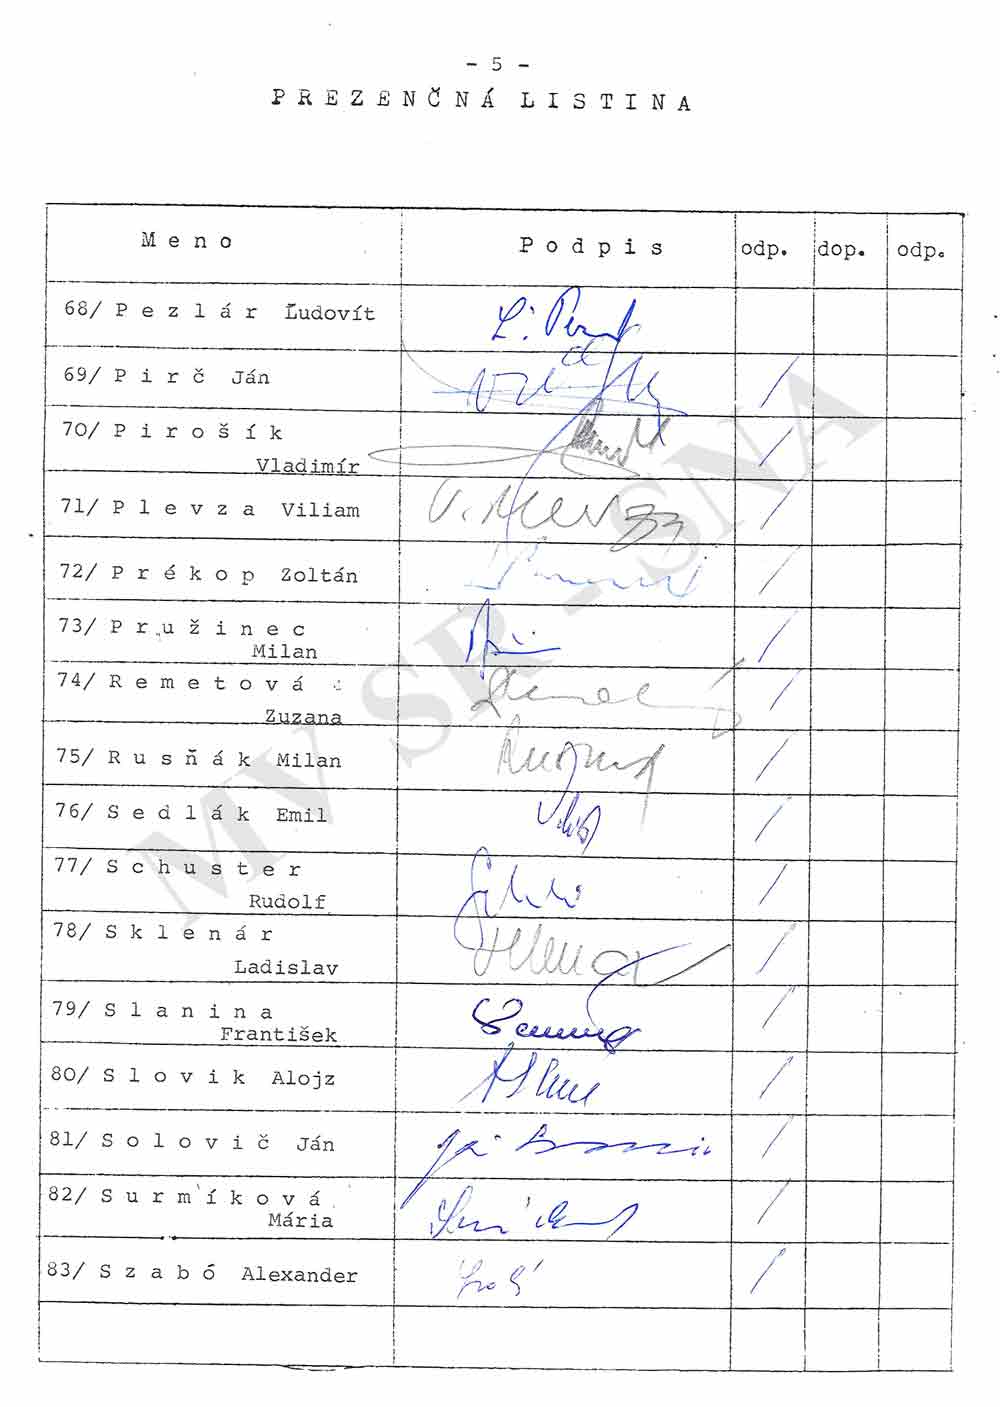 - 5 -
PREZENČNÁ LISTINA
Meno Podpis odp. dop. odp.
68/ Pezlár Ľudovít
69/ Pirč Ján
70/ Pirošík
Vladimír
71/ Plevza Viliam
72/ Prékop Zoltán
73/ Pružinec
Milan
74/ Remetová
Zuzana
75/ Rusňák Milan
76/ Sedlák Emil
77/ Schuster
Rudolf
78/ Sklenár
Ladislav
79/ Slanina
František
80/ Slovik Alojz
81/ Solovič Ján
82/ Surmíková
Mária
83/ Szabó Alexander
MV SR - SNA